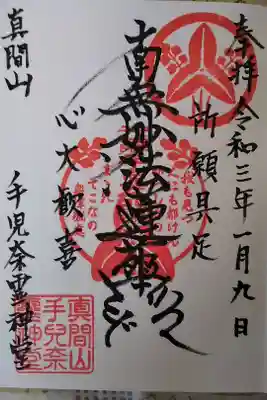 奉拝 令和三年一月九日
所願具足
南無妙法蓮華
心大歓喜
真間山 手児奈霊神堂
真間山
手兒奈
靈神堂